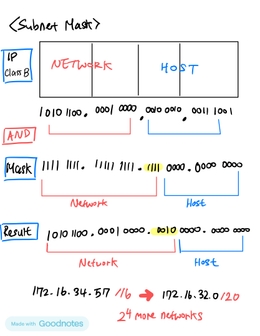 <Subnet Mask>
IP
Class B
NETWORK
HOST
1010 1100. 0001 0000. 0010 0010. 0011 1001
AND
Mask
1111 1111. 1111 1111. 1111 0000. 0000 0000
Network
Host
Result
1010 1100. 0001 0000. 0010 0000. 0000 0000
Network
Host
172.16.34.57/16 → 172.16.32.0/20
2⁴ more networks
Made with Goodnotes